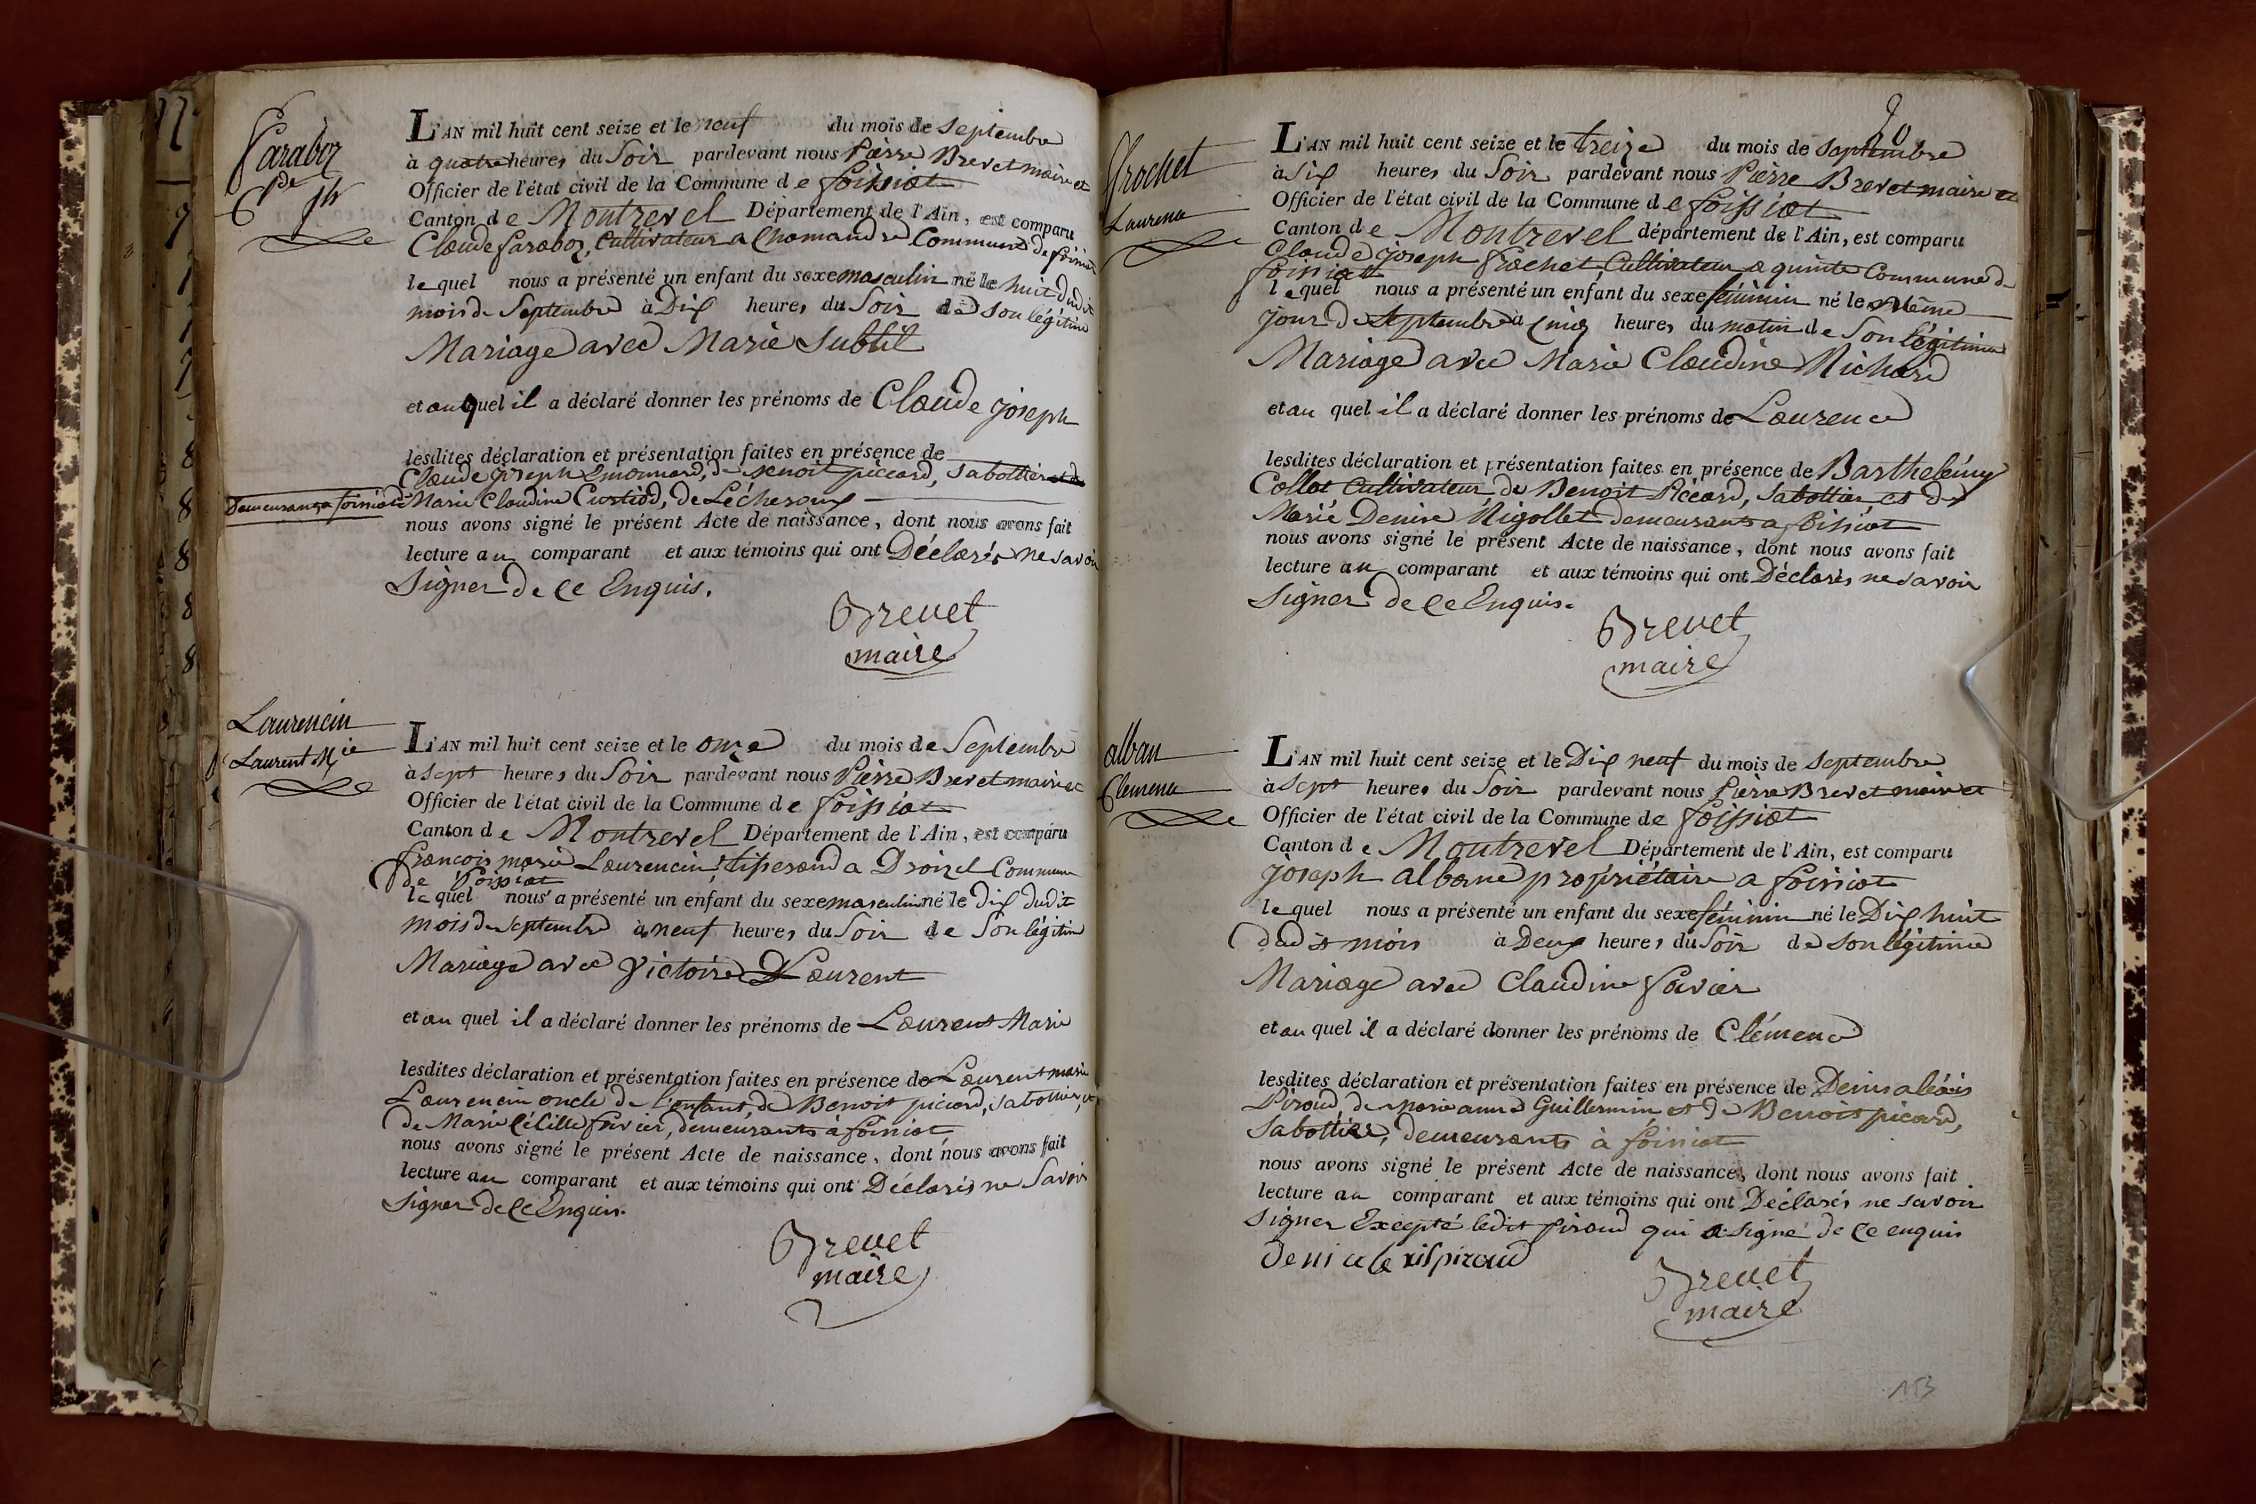 Faraboz
Cde jh
L'AN mil huit cent seize et le neuf du mois de Septembre
à quatre heures du Soir pardevant nous Pierre Brevet maire et
Officier de l'état civil de la Commune de foissiat
Canton de Montrevel Département de l'Ain, est comparu
Claude faraboz, Cultivateur a Chamandre Commune de foissiat
lequel nous a présenté un enfant du sexe masculin né le huit dudit
mois de Septembre à Dix heures du Soir de Son légitime
Mariage avec Marie Subtil
et au quel il a déclaré donner les prénoms de Claude joseph
lesdites déclaration et présentation faites en présence de
Claude joseph de Benoit piccard, Sabottier et de
demeurans a foissiat Marie Claudine de Lécheroux
nous avons signé le présent Acte de naissance, dont nous avons fait
lecture au comparant et aux témoins qui ont Déclarés ne Savoir
Signer de Ce Enquis.
Brevet
maire
Laurencin
Laurent Mie
L'AN mil huit cent seize et le onze du mois de Septembre
à Sept heures du Soir pardevant nous Pierre Brevet maire et
Officier de l'état civil de la Commune de foissiat
Canton de Montrevel Département de l'Ain, est comparu
françois marie Laurencin, tisserand a Droisel Commune
de foissiat
lequel nous a présenté un enfant du sexe masculin né le dix dudit
mois de Septembre à neuf heures du Soir de Son légitime
Mariage avec Victoire Laurent
et au quel il a déclaré donner les prénoms de Laurent Marie
lesdites déclaration et présentation faites en présence de Laurent marie
Laurencin oncle de l'enfant, de Benoit piccard, Sabottier, et
de Marie Célille favier, demeurants à foissiat
nous avons signé le présent Acte de naissance, dont nous avons fait
lecture au comparant et aux témoins qui ont Déclarés ne Savoir
Signer de Ce Enquis.
Brevet
maire
30
Frochet
Laurence
L'AN mil huit cent seize et le treize du mois de Septembre
à Six heures du Soir pardevant nous Pierre Brevet maire et
Officier de l'état civil de la Commune de foissiat
Canton de Montrevel département de l'Ain, est comparu
Claude joseph frochet, Cultivateur a quinte Commune de
foissiat
lequel nous a présenté un enfant du sexe féminin né le Même
jour de Septembre à Cinq heures du matin de Son légitime
Mariage avec Marie Claudine Richard
et au quel il a déclaré donner les prénoms de Laurence
lesdites déclaration et présentation faites en présence de Barthelémy
Collet Cultivateur de Benoit Piccard, Sabottier et de
Marie Denise Rigollet demeurants a foissiat
nous avons signé le présent Acte de naissance, dont nous avons fait
lecture au comparant et aux témoins qui ont Déclarés ne Savoir
Signer de Ce Enquis.
Brevet
maire
alban
Clemence
L'AN mil huit cent seize et le Dix neuf du mois de Septembre
à Sept heures du Soir pardevant nous Pierre Brevet maire et
Officier de l'état civil de la Commune de foissiat
Canton de Montrevel Département de l'Ain, est comparu
joseph alban propriétaire a foissiat
lequel nous a présenté un enfant du sexe féminin né le Dix huit
dudit mois à Deux heures du Soir de Son légitime
Mariage avec Claudine favier
et au quel il a déclaré donner les prénoms de Clémence
lesdites déclaration et présentation faites en présence de Denis aléxis
Piroud, de marie anne Guillermin et de Benoit picard,
Sabottier, demeurants à foissiat
nous avons signé le présent Acte de naissance, dont nous avons fait
lecture au comparant et aux témoins qui ont Déclarés ne Savoir
Signer Excepté ledit piroud qui a Signé de Ce enquis
Brevet
maire
153